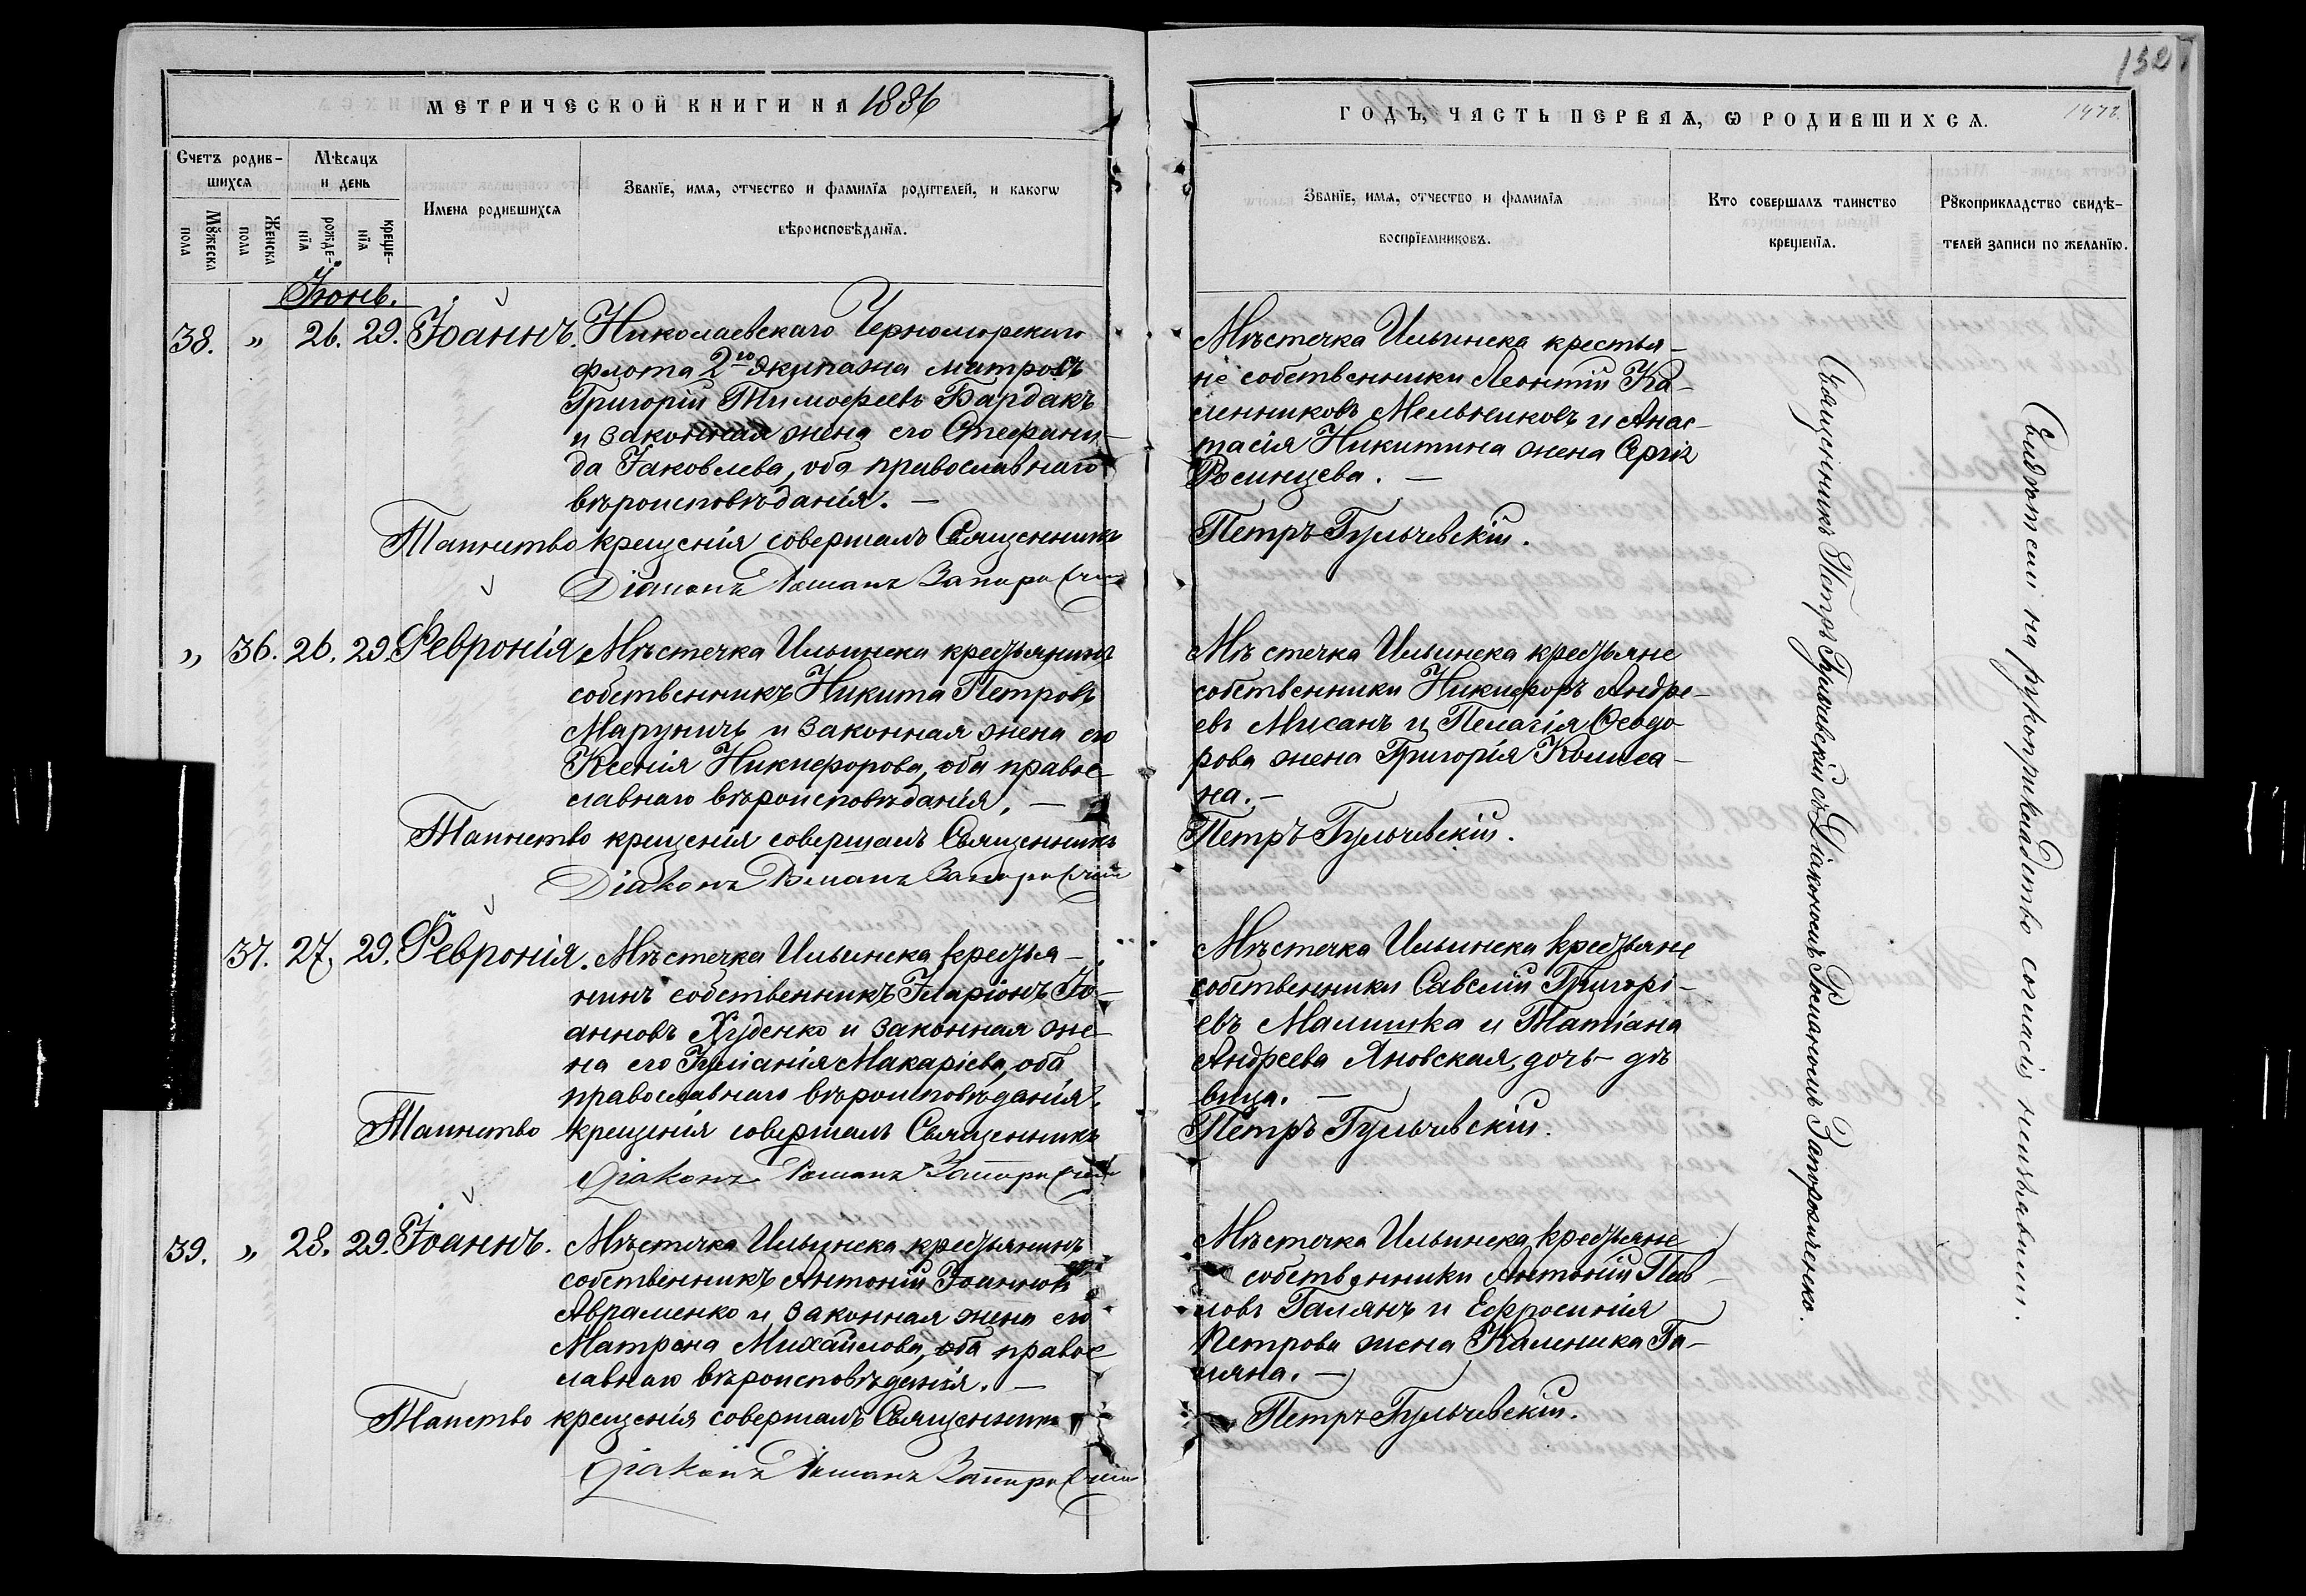 132
1472.
МЕТРИЧЕСКОЙ КНИГИ НА 1886
ГОДЪ, ЧАСТЬ ПЕРВАЯ, Ѡ РОДИВШИХСЯ.
Счетъ родив-
шихся
Мѣсяцъ
и день
Мꙋжеска
пола
Женска
пола
рожде-
нія
креще-
нія
Имена родившихся
Званіе, имя, отчество и фамилія родителей, и какогѡ
вѣроисповѣданія.
Званіе, имя, отчество и фамилія
воспріемниковъ.
Кто совершалъ таинство
крещенія.
Рꙋкоприкладство свидѣ-
телей записи по желанію.
Іюнь.
38. „ 26. 29. Іоаннъ. Николаевскаго Черноморскаго
флота 2го экипажа матросъ
Григорій Тимофеевъ Бардакъ
и законная жена его Стефани-
да Іаковлева, оба православнаго
вѣроисповѣданія. —
Таинство крещенія совершалъ Священникъ
Діаконъ Романъ
Мѣстечка Ильинска крестья-
не собственники Леонтій Ка-
линниковъ Мельниковъ и Анас-
тасія Никитина жена Сергія
Росинцева. —
Петръ Гульчевскій.
„ 36. 26. 29. Февронія. Мѣстечка Ильинска крестьянинъ
собственникъ Никита Петровъ
Маруничъ и законная жена его
Ксенія Никифорова, оба правос-
лавнаго вѣроисповѣданія. —
Таинство крещенія совершалъ Священникъ
Діаконъ Романъ
Мѣстечка Ильинска крестьяне
собственники Никифоръ Андре-
евъ Мисанъ и Пелагія Ѳеодо
рова жена Григорія Колиса-
на. —
Петръ Гульчевскій.
37. 27. 29. Февронія. Мѣстечка Ильинска крестья-
нинъ собственникъ Иларіонъ Іо-
анновъ Худенко и законная же-
на его Іуліанія Макаріева, оба
православнаго вѣроисповѣданія.
Таинство крещенія совершалъ Священникъ
Діаконъ Романъ
Мѣстечка Ильинска крестьяне
собственники Савелій Григорі-
евъ Малишка и Татіана
Андреева Яновская, дочь дѣ
вица. —
Петръ Гульчевскій.
39. „ 28. 29. Іоаннъ. Мѣстечка Ильинска крестьянинъ
собственникъ Антоній Іоанновъ
Авраменко и законная жена его
Матрона Михайлова, оба правос
лавнаго вѣроисповѣданія. —
Таинство крещенія совершалъ Священникъ
Діаконъ Романъ
Мѣстечка Ильинска крестьяне
собственники Антоній Пав-
ловъ Галянъ и Ефросинія
Петрова жена Калиника Га-
ляна. —
Петръ Гульчевскій.
Священникъ Петръ Гульчевскій съ Діакономъ Романомъ Запорожченко.
Свидѣтели на рукоприкладство согласія неизъявили.